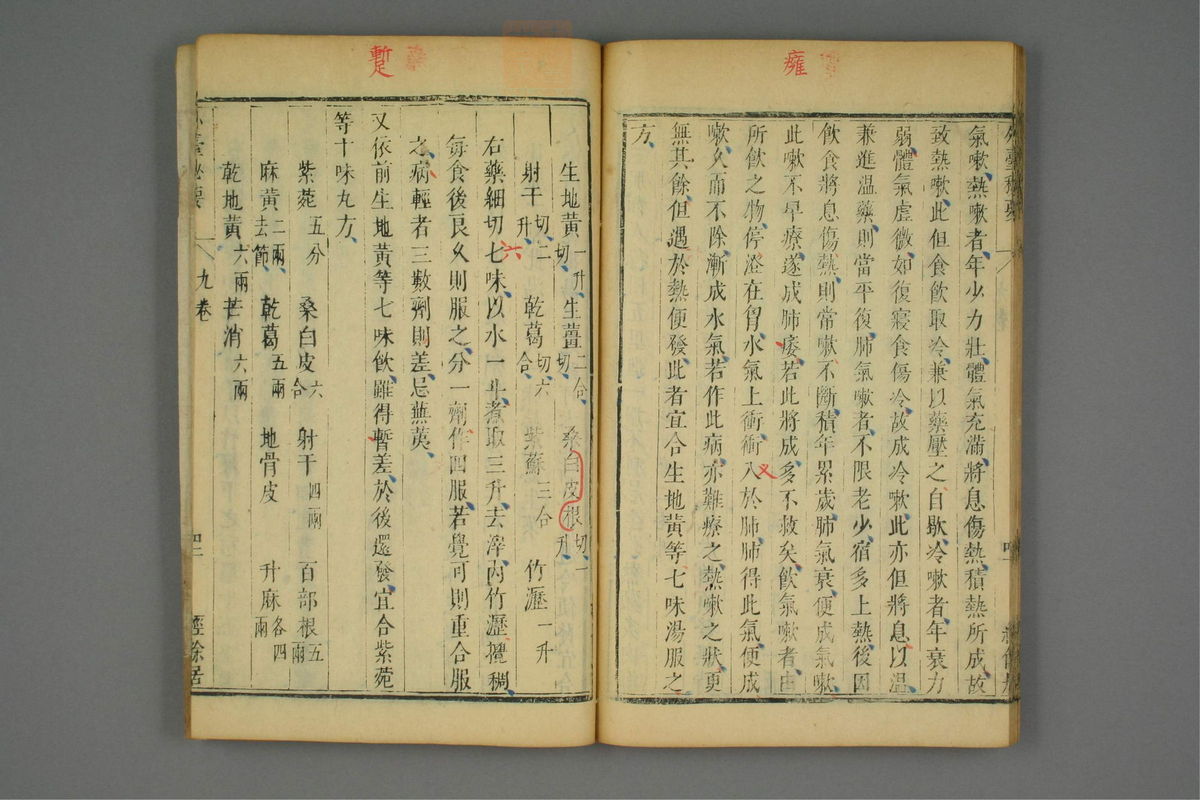 癰
氣嗽熱嗽者年少力壯體氣充滿將息傷熱積熱所成故
致熱嗽此但食飲取冷兼以藥壓之自歇冷嗽者年衰力
弱體氣虛微如復寢食傷冷故成冷嗽此亦但將息以溫
兼進溫藥則當平復肺氣嗽者不限老少宿多上熱後因
飲食將息傷熱則常嗽不斷積年累歲肺氣衰便成氣嗽
此嗽不早療遂成肺痿若此將成多不救矣飲氣嗽者由
所飲之物停澄在胷水氣上衝衝入於肺肺得此氣便成
嗽久而不除漸成水氣若作此病亦難療之熱嗽之狀更
無其餘但遇於熱便發此者宜合生地黃等七味湯服之
方
蹔
生地黃一升切 生薑二合切 桑白皮根切一升
射干切二升 乾葛切六合 紫蘇三合 竹瀝一升
右藥細切七味以水一斗煮取三升去滓內竹瀝攪稠
每食後良久則服之分一劑作四服若覺可則重合服
之病輕者三數劑則差忌蕪荑
又依前生地黃等七味飲雖得暫差於後還發宜合紫菀
等十味丸方
紫菀五分 桑白皮六合 射干四兩 百部根五兩
麻黃二兩去節 乾葛五兩 地骨皮 升麻各四兩
乾地黃六兩 芒消六兩
九卷
經餘居